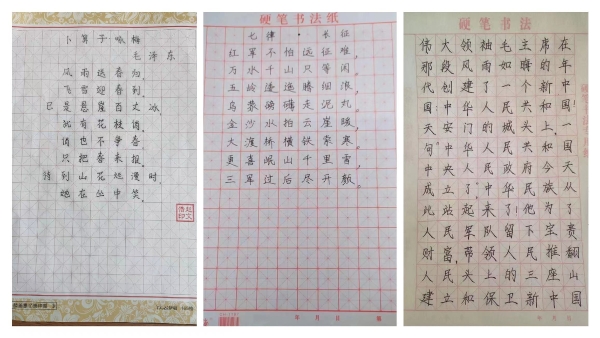 卜算子·咏梅
毛泽东
风雨送春归，
飞雪迎春到。
已是悬崖百丈冰，
犹有花枝俏。
俏也不争春
只把春来报。
待到山花烂漫时，
她在丛中笑。
硬笔书法纸
七律·长征
红军不怕远征难，
万水千山只等闲。
五岭逶迤腾细浪，
乌蒙磅礴走泥丸。
金沙水拍云崖暖，
大渡桥横铁索寒。
更喜岷山千里雪，
三军过后尽开颜。
年 月 日
硬笔书法
伟大领袖毛主席在
那段风雨如晦的年
代创建了一个新中
国！中华人民共和国！
天安门的城头上，一
句“中华人民共和国
中央人民政府今天
成立了”中华民族从
此站起来了！他为了
人民军队留下宝贵
财富，带领人民推翻
人民头上的三座山
建立和保卫新中国